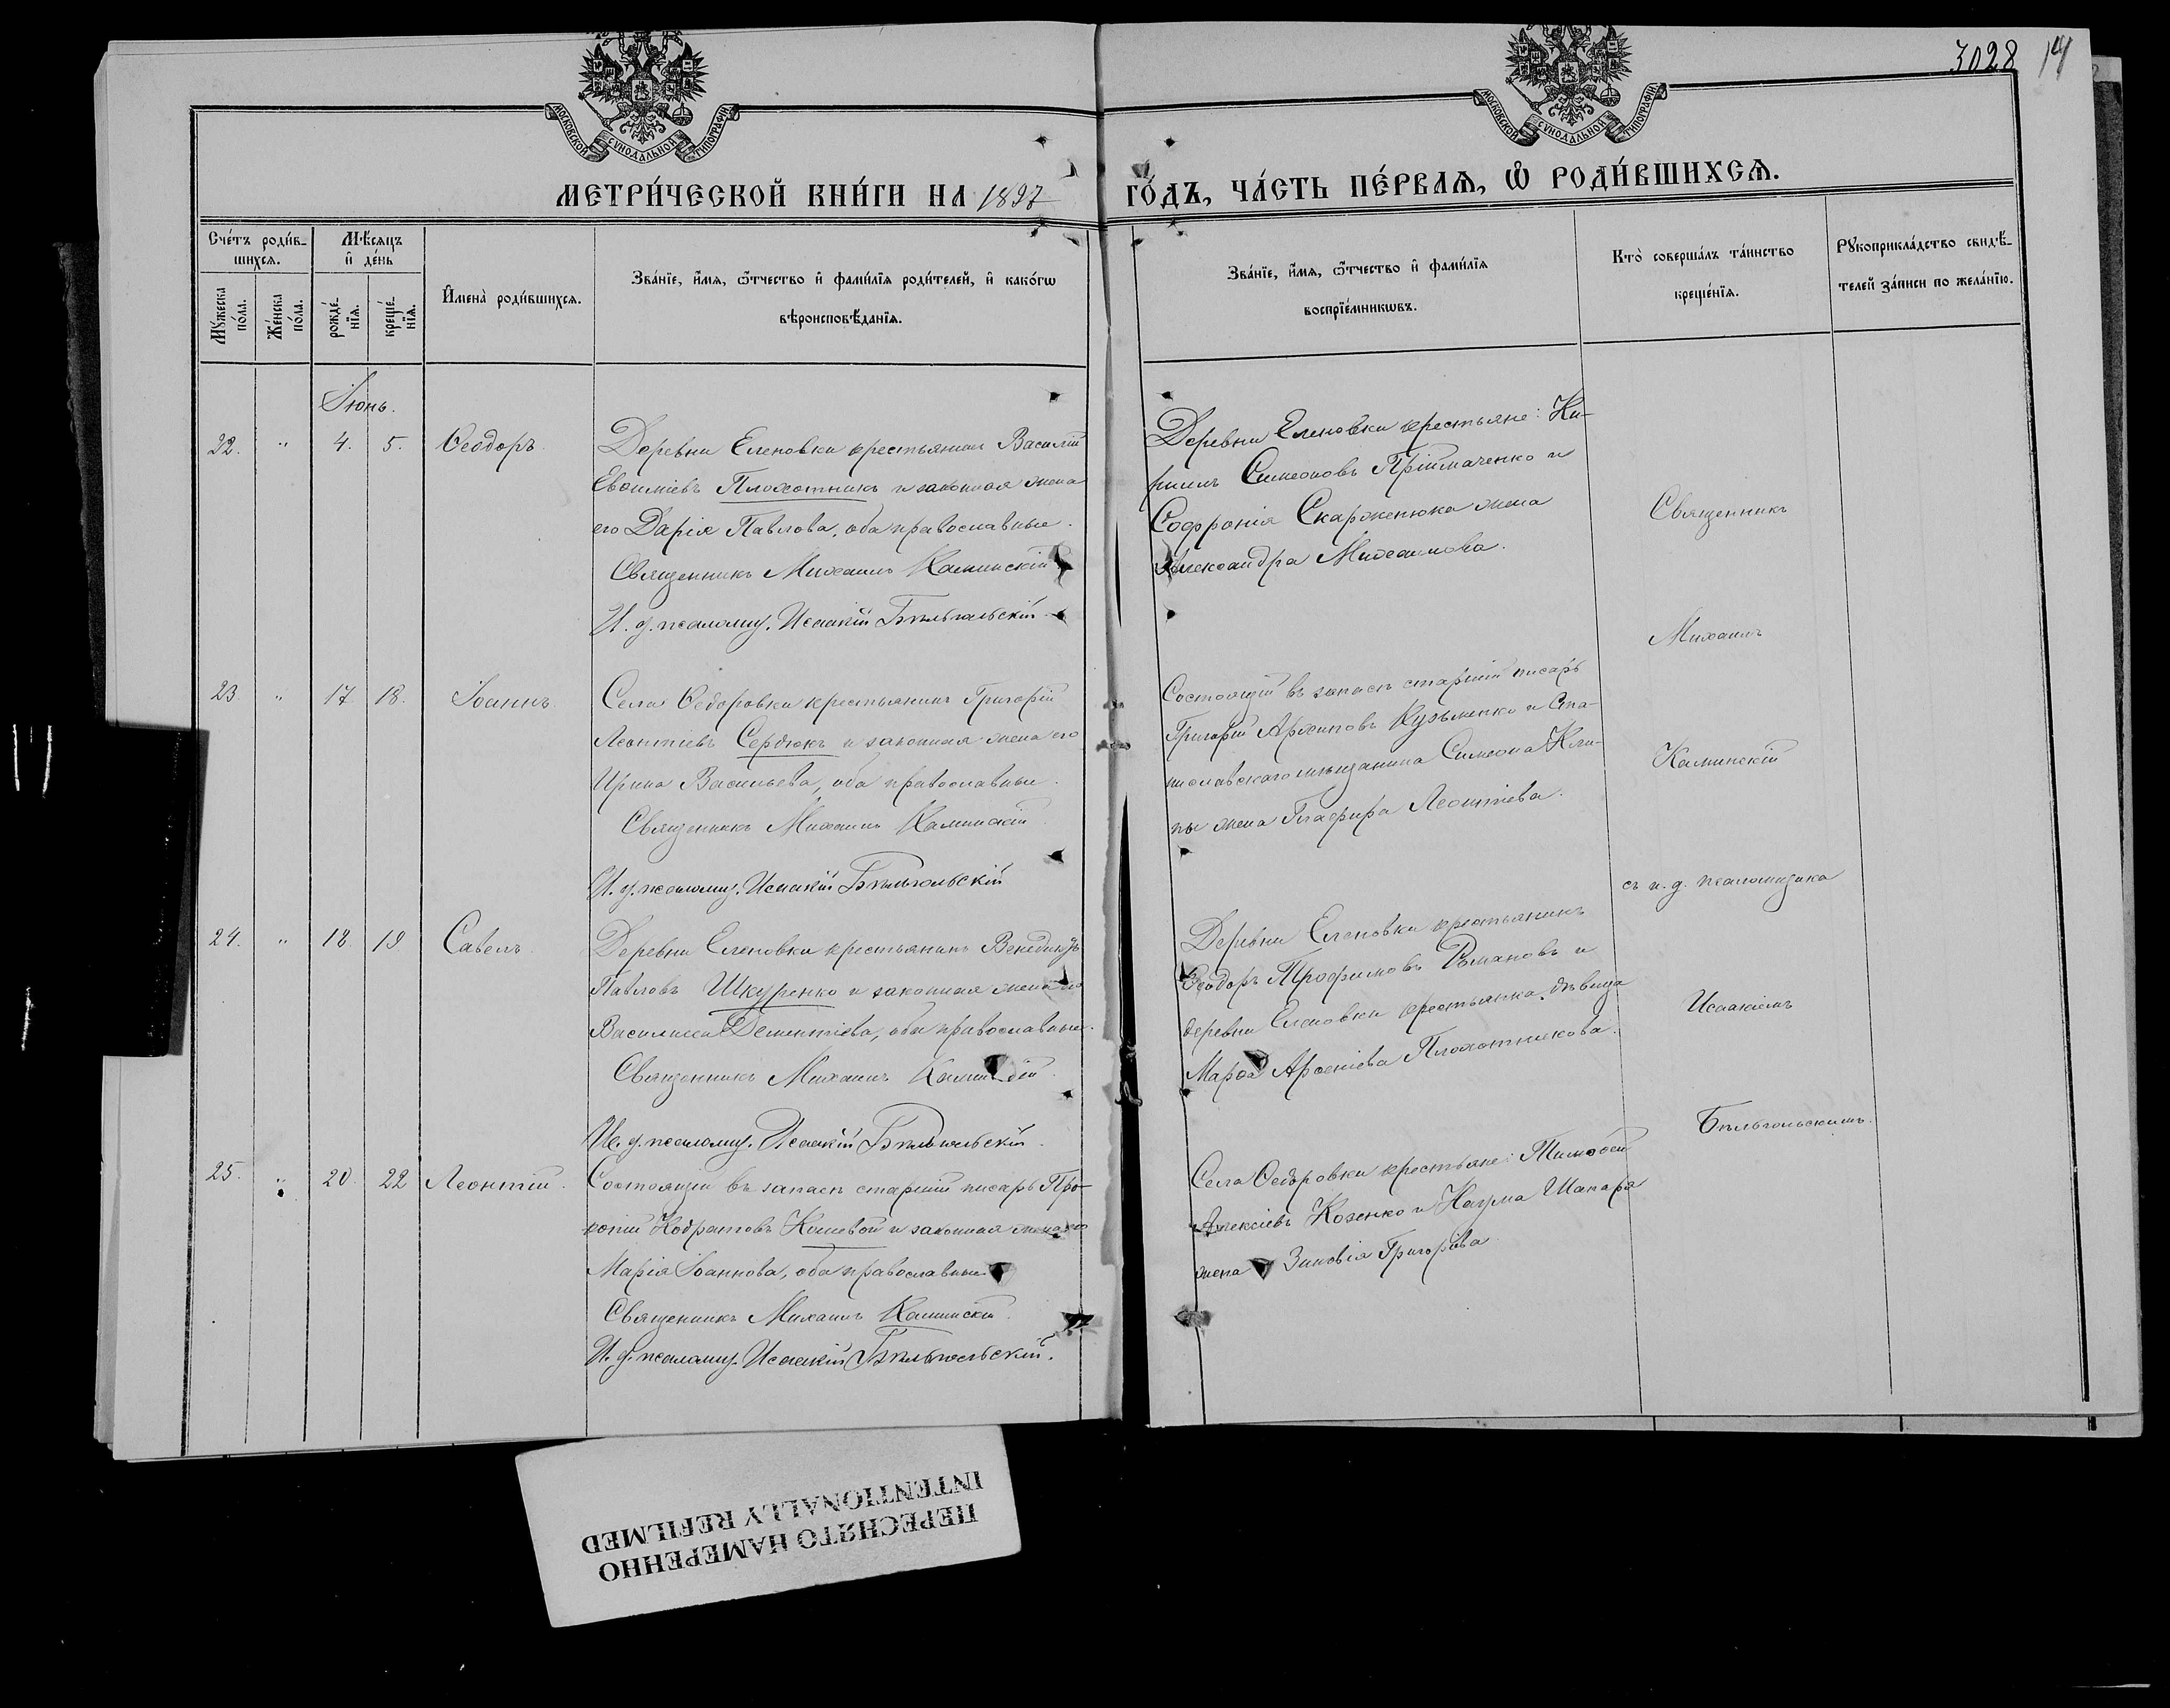 3028 14
МОСКОВСКОЙ СѴНОДАЛЬНОЙ ТИПОГРАФІИ
МОСКОВСКОЙ СѴНОДАЛЬНОЙ ТИПОГРАФІИ
МЕТРИ́ЧЕСКОЙ КНИ́ГИ НА 1897 ГО́ДЪ, ЧА́СТЬ ПЕ́РВАѦ, Ѡ РОДИ́ВШИХСѦ.
Сче́тъ роди́в-
шихсѧ.
Мꙋ́жеска по́ла.
Же́нска по́ла.
Мѣ́сѧцъ
и҆ де́нь
рожде́-
нїѧ.
креще́-
нїѧ.
И҆мена̀ роди́вшихсѧ.
Зва́нїе, и҆́мѧ, ѿ́тчество и҆ фами́лїѧ роди́телей, и҆ како́гѡ
вѣроисповѣ́данїѧ.
Зва́нїе, и҆́мѧ, ѿ́тчество и҆ фами́лїѧ
воспрїе́мникѡвъ.
Кто̀ соверша́лъ та́инство
креще́нїѧ.
Рꙋкоприкла́дство свидѣ́-
телей за́писи по жела́нїю.
Іюнь.
22. " 4. 5. Ѳеодоръ.
Деревни Еленовки крестьянинъ Василій
Евѳиміевъ Плохотникъ и законная жена
его Дарія Павлова, оба православные.
Священникъ Михаилъ Каминскій
И. д. псаломщ. Исаакій Бѣльгольскій.
Деревни Еленовки крестьяне: Ки-
риллъ Симеоновъ Пріймаченко и
Софронія Скарженюка жена
Александра Михаилова.
23. " 17 18. Іоаннъ.
Села Ѳедоровки крестьянинъ Григорій
Леонтіевъ Сердюкъ и законная жена его
Ирина Васильева, оба православные.
Священникъ Михаилъ Каминскій
И. д. псаломщ. Исаакій Бѣльгольскій
Состоящій въ запасѣ старшій писарь
Григорій Архиповъ Кузьменко и Ана-
ньевскаго мѣщанина Симеона
жена Глафира Леонтіева.
24. " 18. 19 Савелъ.
Деревни Еленовки крестьянинъ Венедиктъ
Павловъ Шкуренко и законная жена его
Василиса Дементіева, оба православные.
Священникъ Михаилъ Каминскій.
И. д. псаломщ. Исаакій Бѣльгольскій.
Деревни Еленовки крестьянинъ
Ѳеодоръ Трофимовъ Романовъ и
деревни Еленовки крестьянка, дѣвица
Марѳа Арсеніева Плохотникова.
25. " 20. 22 Леонтій.
Состоящій въ запасѣ старшій писарь Про-
копій Кодратовъ Кошевой и законная жена его
Марія Іоаннова, оба православные
Священникъ Михаилъ Каминскій.
И. д. псаломщ. Исаакій Бѣльгольскій.
Села Ѳедоровки крестьяне: Тимоѳей
Алексіевъ Козенко и Наума Шапара
жена Зиновія Григоріева
Священникъ
Михаилъ
Каминскій
съ и. д. псаломщика
Исаакіемъ
Бѣльгольскимъ.
ПЕРЕСНЯТО НАМЕРЕННО
INTENTIONALLY REFILMED